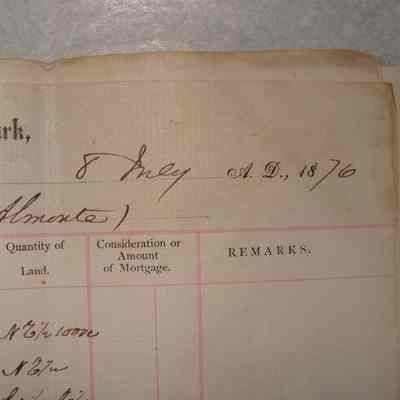 ark,
8 July A. D., 1876
Almonte)
Quantity of
Land.
Consideration or
Amount
of Mortgage.
REMARKS.
N E ½ 100 ac
N E ½